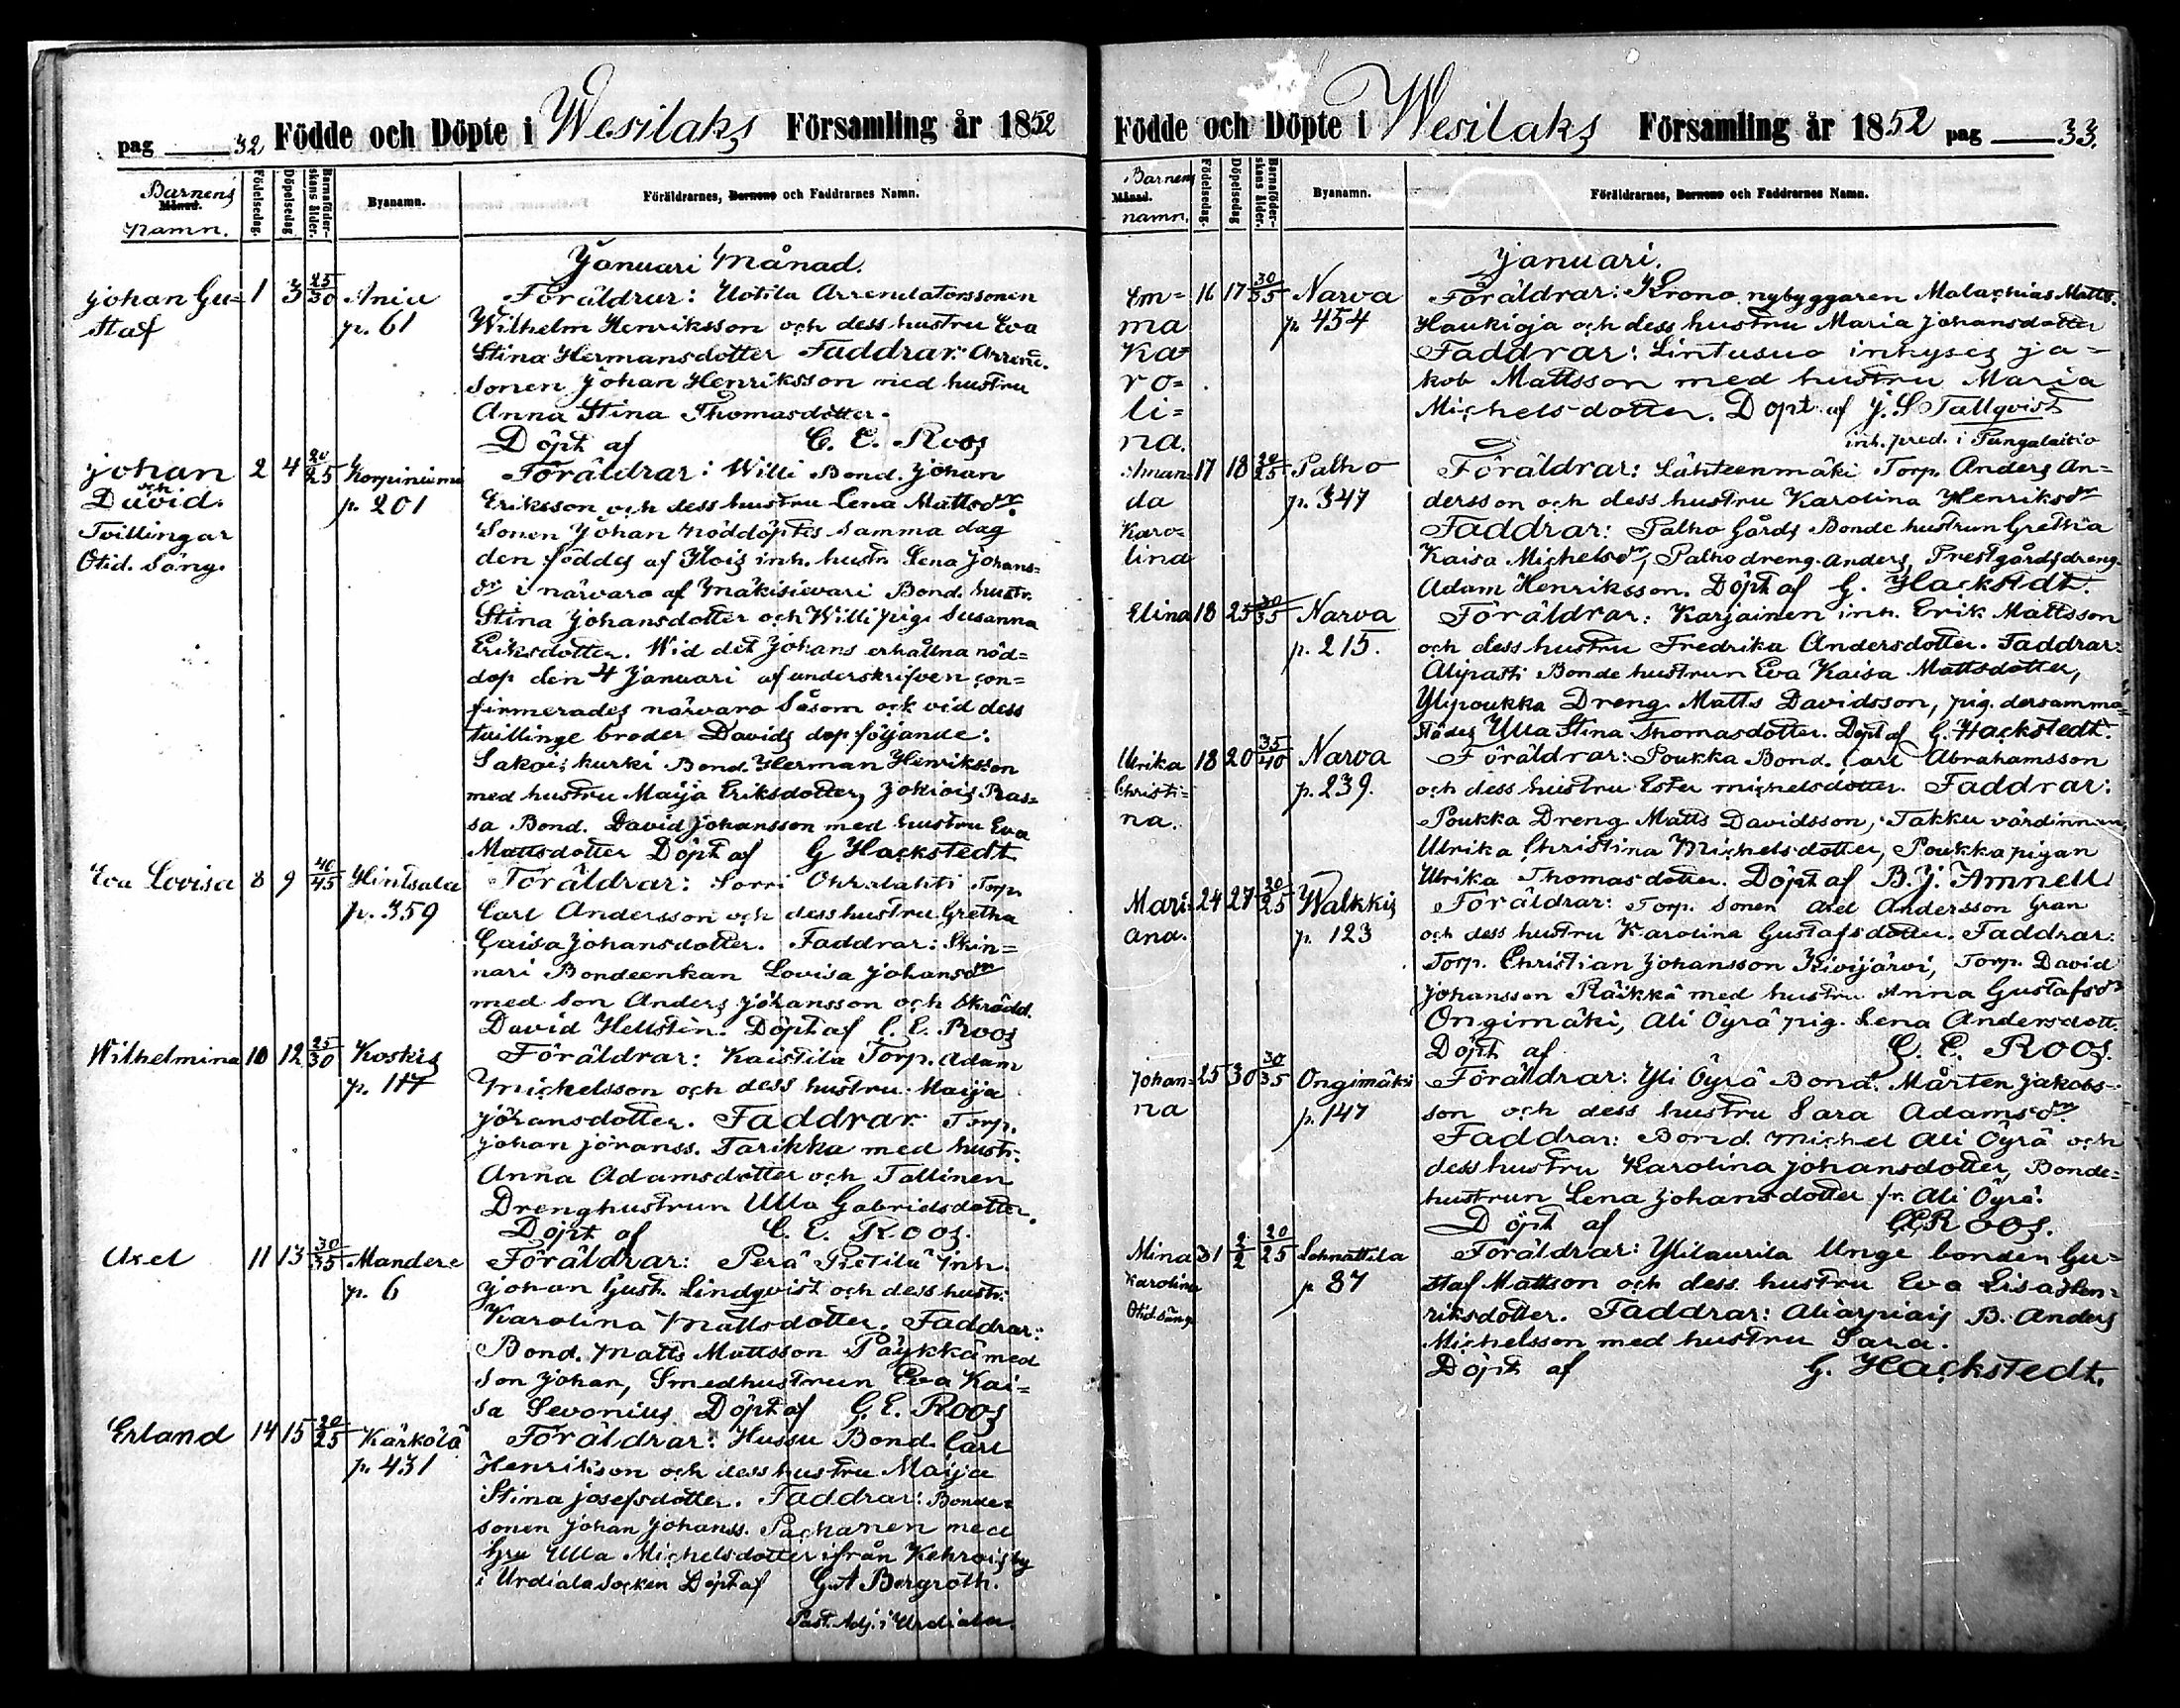 pag 32 Födde och Döpte i Wesilaks Församling år 1852
Barnens Månad. Namn.
Födelsedag.
Döpelsedag
Barnaföderskans ålder.
Byanamn.
Föräldrarnes, Barnens och Faddrarnes Namn.
Januari Månad.
Johan Gu= 1 3 25/30 Ania Föräldrar: Uotila Arrendatorssonen
staf p. 61 Wilhelm Henriksson och dess hustru Eva
Stina Hermansdotter Faddrar: Arrend.
sonen Johan Henriksson med hustru
Anna Stina Thomasdotter.
Döpt af C. E. Roos
Johan 2 4 20/25 Korpiniemi Föräldrar: Willi Bond. Johan
och David. p. 201 Eriksson och dess hustru Lena Mattsdr.
Tvillingar Sonen Johan nöddöptes samma dag
Otid. säng. den föddes af Hois inh. hustr. Lena Johans=
dr i närvaro af Mäkisievari Bond. hustr.
Stina Johansdotter och Willi pig. Susanna
Eriksdotter. Wid det Johans erhållna nöd=
dop den 4 Januari af underskrifven con=
firmerades närvaro såsom ock vid dess
tvillinge broder Davids dop följande:
Sakois hurki Bond. Herman Henriksson
med hustru Maija Eriksdotter, Jokiois Pras=
sa Bond. David Johansson med hustru Eva
Mattsdotter Döpt af G Hackstedt
Eva Lovisa 8 9 40/45 Hintsala Föräldrar: Sorri Ohralahti Torp.
p. 359 Carl Andersson och dess hustru Gretha
Caisa Johansdotter. Faddrar: Skin=
nari Bondeenkan Lovisa Johansdr
med son Anders Johansson och Skrädd.
David Hellstén. Döpt af C. E. Roos
Wilhelmina 10 12 25/30 Koskis Föräldrar: Kaistila Torp. Adam
p. 117 Michelsson och dess hustru Maija
Johansdotter. Faddrar Torp.
Johan Johanss. Tarikka med hustr.
Anna Adamsdotter och Tallinen
Drenghustrun Ulla Gabrielsdotter.
Döpt af C. E. Roos.
Axel 11 13 30/35 Mandere Föräldrar: Perä Pietilä Inh.
p. 6 Johan Gust. Lindqvist och dess hustr.
Karolina Mattsdotter. Faddrar:
Bond. Matts Mattsson Päykkä med
son Johan, Smedhustrun Eva Kai=
sa Sevonius Döpt af C. E. Roos
Erland 14 15 20/25 Kärkölä Föräldrar: Hussu Bond. Carl
p. 431 Henriksson och dess hustru Maija
Stina Josefsdotter. Faddrar: Bonde=
sonen Johan Johanss. Pachanen med
hru Ulla Michelsdotter ifrån Kehrois by
i Urdiala Socken Döpt af G. A Bergroth.
Past. Adj. i Urdiala.
Födde och Döpte i Wesilaks Församling år 1852 pag 33.
Barnens Månad. namn.
Födelsedag.
Döpelsedag
Barnaföderskans ålder.
Byanamn.
Föräldrarnes, Barnens och Faddrarnes Namn.
Januari.
Em= 16 17 30/35 Narva Föräldrar: Krono nybyggaren Malachias Matts.
ma p. 454 Haukioja och dess hustru Maria Johansdotter
Ka= Faddrar: Lintusuo inhyses Ja=
ro= kob Mattsson med hustru Maria
li= Michelsdotter. Döpt af J. S Tallqvist
na. inh. pred. i Pungalaitio
Aman= 17 18 20/25 Palho Föräldrar: Lähteenmäki Torp. Anders An=
da p. 347 dersson och dess hustru Karolina Henriksdr
Karo= Faddrar: Palho Gårds Bonde hustrun Gretha
lina Kaisa Michelsdr, Palho dreng. Anders, Prestgårdsdreng.
Adam Henriksson. Döpt af G. Hackstedt.
Elina 18 25 30/35 Narva Föräldrar: Karjainen inh. Erik Mattsson
p. 215. och dess hustru Fredrika Andersdotter. Faddrar:
Alipasti Bonde hustrun Eva Kaisa Mattsdotter,
Ylipoukka Dreng Matts Davidsson, pig. dersamma=
städes Ulla Stina Thomasdotter. Döpt af G. Hackstedt.
Ulrika 18 20 35/40 Narva Föräldrar: Poukka Bond. Carl Abrahamsson
Christi= p. 239. och dess hustru Ester Michelsdotter. Faddrar:
na. Poukka Dreng Matts Davidsson, Takku värdinnan
Ulrika Christina Michelsdotter, Poukka pigan
Ulrika Thomasdotter. Döpt af B. J. Amnell
Mari= 24 27 20/25 Walkkis Föräldrar: Torp. Sonen Axel Andersson Gran
ana. p. 123 och dess hustru Karolina Gustafsdotter. Faddrar:
Torp. Christian Johansson Kivijärvi, Torp. David
Johansson Räikkä med hustru Anna Gustafsdr
Ongimäki, Ali Öyrä pig. Lena Andersdott.
Döpt af C. E. Roos.
Johan= 25 30 30/35 Ongimäki Föräldrar: Yli Öyrä Bond. Mårten Jakobs=
na p. 147 son och dess hustru Sara Adamsdr
Faddrar: Bond. Michel Ali Öyrä och
dess hustru Karolina Johansdotter, Bonde=
hustrun Lena Johansdotter fr. Ali Öyrä.
Döpt af C E Roos.
Mina 31 2/2 20/25 Sohnattila Föräldrar: Ylilaurila Unge bonden Gu=
Karolina p. 87 staf Mattson och dess hustru Eva Lisa Hen=
Otid. säng. riksdotter. Faddrar: Aliarpiais B. Anders
Michelsson med hustru Sara.
Döpt af G. Hackstedt.